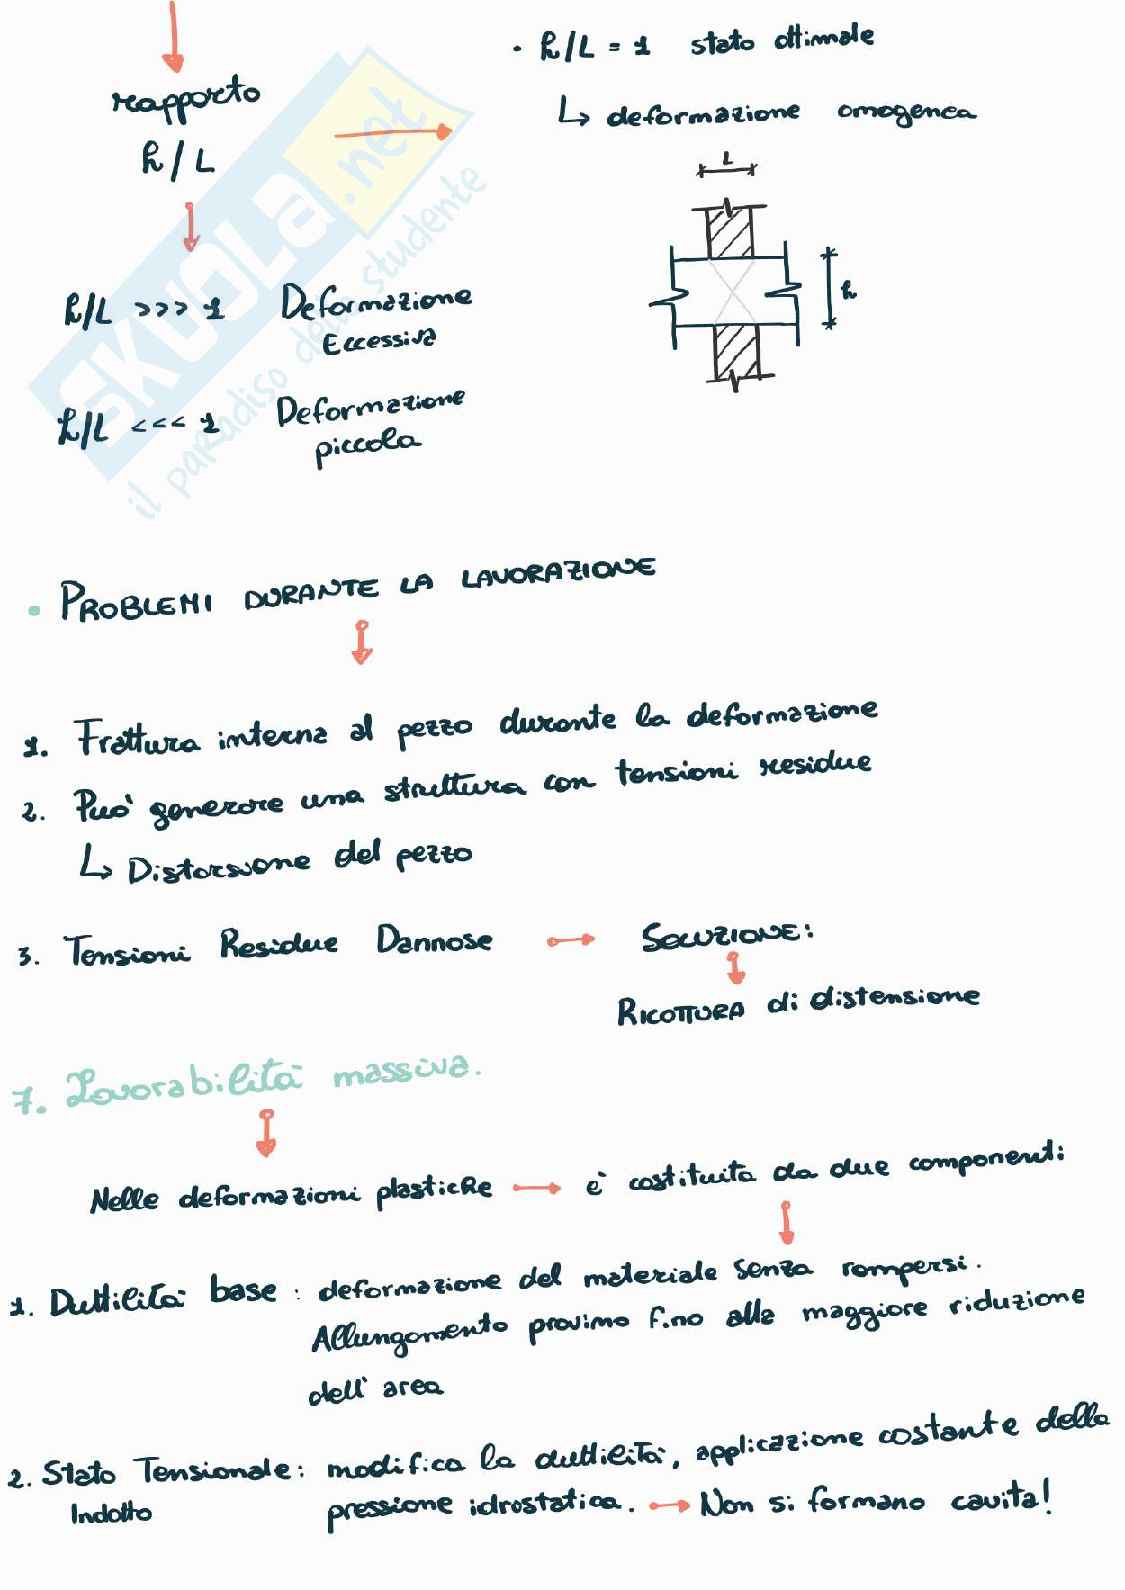 rapporto
h/L
· h/L = 1 stato ottimale
↳ deformazione omogenea
L
h
h/L >>> 1 Deformazione
Eccessiva
h/L <<< 1 Deformazione
piccola
SKUOLA.net
il paradiso dello studente
· PROBLEMI DURANTE LA LAVORAZIONE
1. Frattura interna al pezzo durante la deformazione
2. Può generare una struttura con tensioni residue
↳ Distorsione del pezzo
3. Tensioni Residue Dannose → SOLUZIONE:
RICOTTURA di distensione
7. Lavorabilità massiva.
Nelle deformazioni plastiche → è costituita da due componenti:
1. Duttilità base : deformazione del materiale senza rompersi.
Allungamento provimo fino alla maggiore riduzione
dell' area
2. Stato Tensionale : modifica la duttilità, applicazione costante della
Indotto pressione idrostatica. → Non si formano cavità!